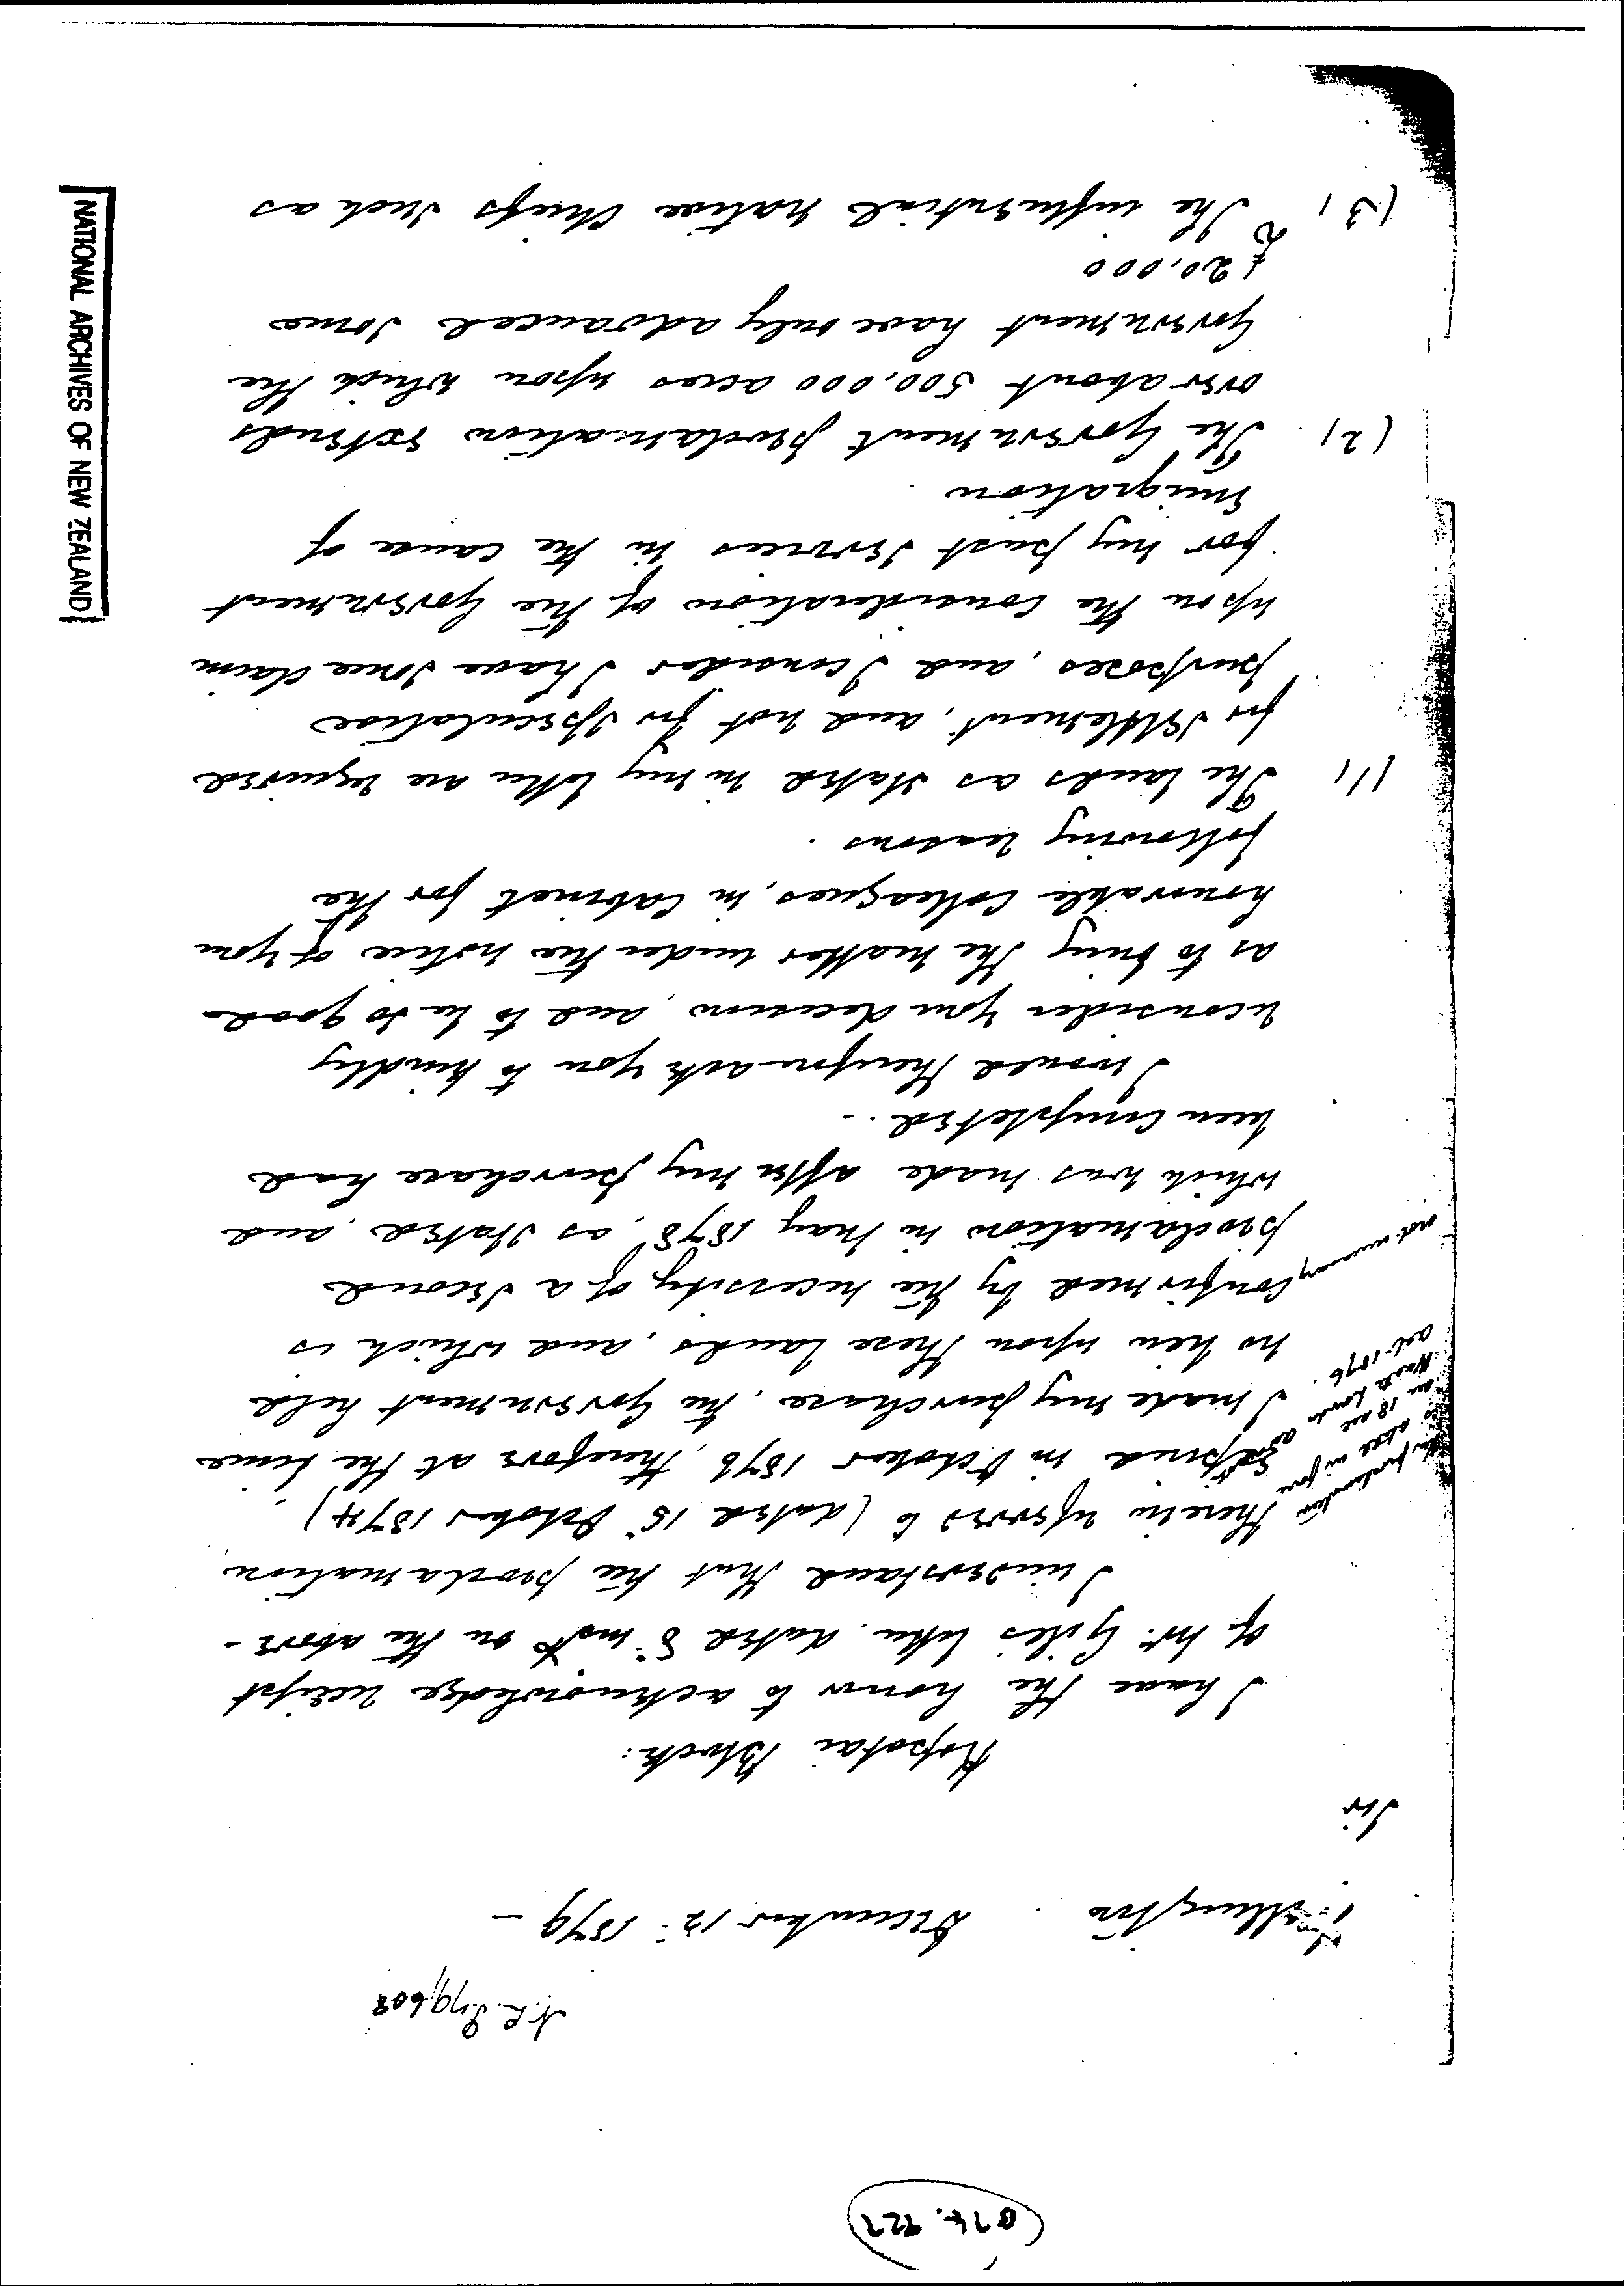 N.L.P. 79/608
Wellington December 12th 1879 -
Sir
Kopotai Block:
I have the honor to acknowledge receipt
of Mr. Gill's letter, dated 8th inst on the above -
I understand that the proclamation
therein referred to (dated 15th October 1874)
Expired in October 1876, therefore at the time
I made my purchase, the Government held
no lien upon these lands, and which is
confirmed by the necessity of a second
proclamation in May 1878, as stated, and
which was made after my purchase had
been completed. -
I would therefore ask you to kindly
reconsider your decision, and to be so good
as to bring the matter under the notice of your
honorable Colleagues, in Cabinet for the
following reasons.
(1) The lands as stated in my letter are required
for settlement, and not for speculative
purposes, and I consider I have some claim
upon the consideration of the Government
for my past services in the cause of
Emigration.
(2) The Government proclamation extends
over about 500,000 acres upon which the
Government have only advanced some
£20,000
(3) The influential native Chiefs such as
not necessary
in force
18 sec
Act 1876.
NATIONAL ARCHIVES OF NEW ZEALAND